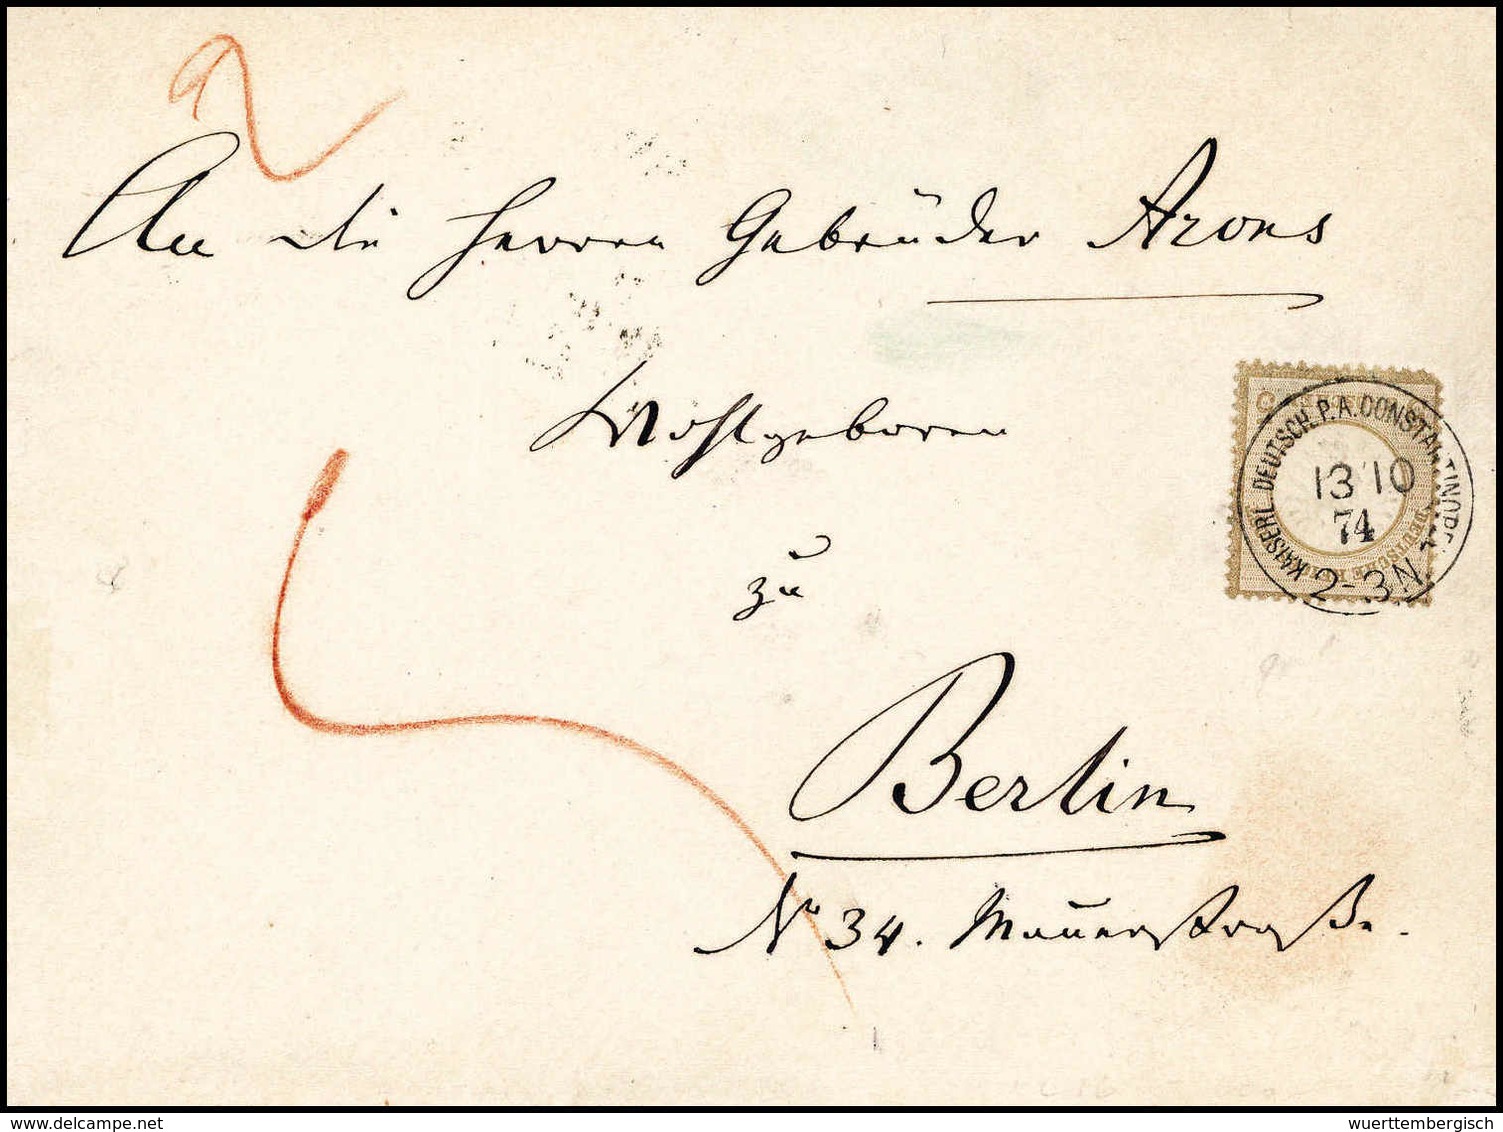 An die Herren Gebrüder Arons
Wohlgeboren
zu
Berlin
No 34. Mauerstraße.
KAISERL. DEUTSCH. P.A. CONSTANTINOPEL
13 10
74
2-3N
DEUTSCHE
www.delcampe.net
wuerttembergisch